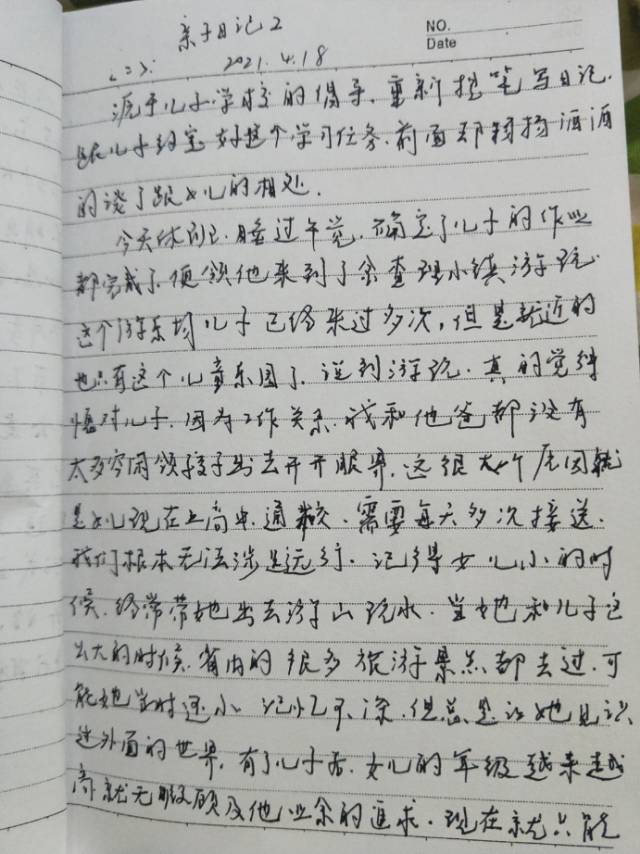 亲子日记2
NO.
Date
(二). 2021.4.18
源于儿子学校的倡导,重新提笔写日记.
跟儿子约定好这个学习任务.前面却稀扬洒洒
的谈了跟女儿的相处.
今天休班.睡过午觉.确定了儿子的作业
都完成了.便领他来到了余查理小镇游玩.
这个游乐场儿子已经来过多次,但是就近的
也只有这个儿童乐园了.说到游玩.真的觉得
愧对儿子.因为工作关系.我和他爸都没有
太多空闲领孩子出去开开眼界.这很大个原因就
是女儿现在上高中.通校.需要每天多次接送.
我们根本无法涉足远行.记得女儿小的时
候.经常带她出去游山玩水.当她和儿子这
么大的时候.省内的很多旅游景点都去过.可
能她当时还小.记忆不深.但总是让她见识
过外面的世界,有了儿子后.女儿的年级越来越
高就无暇顾及他业余的追求.现在就只能